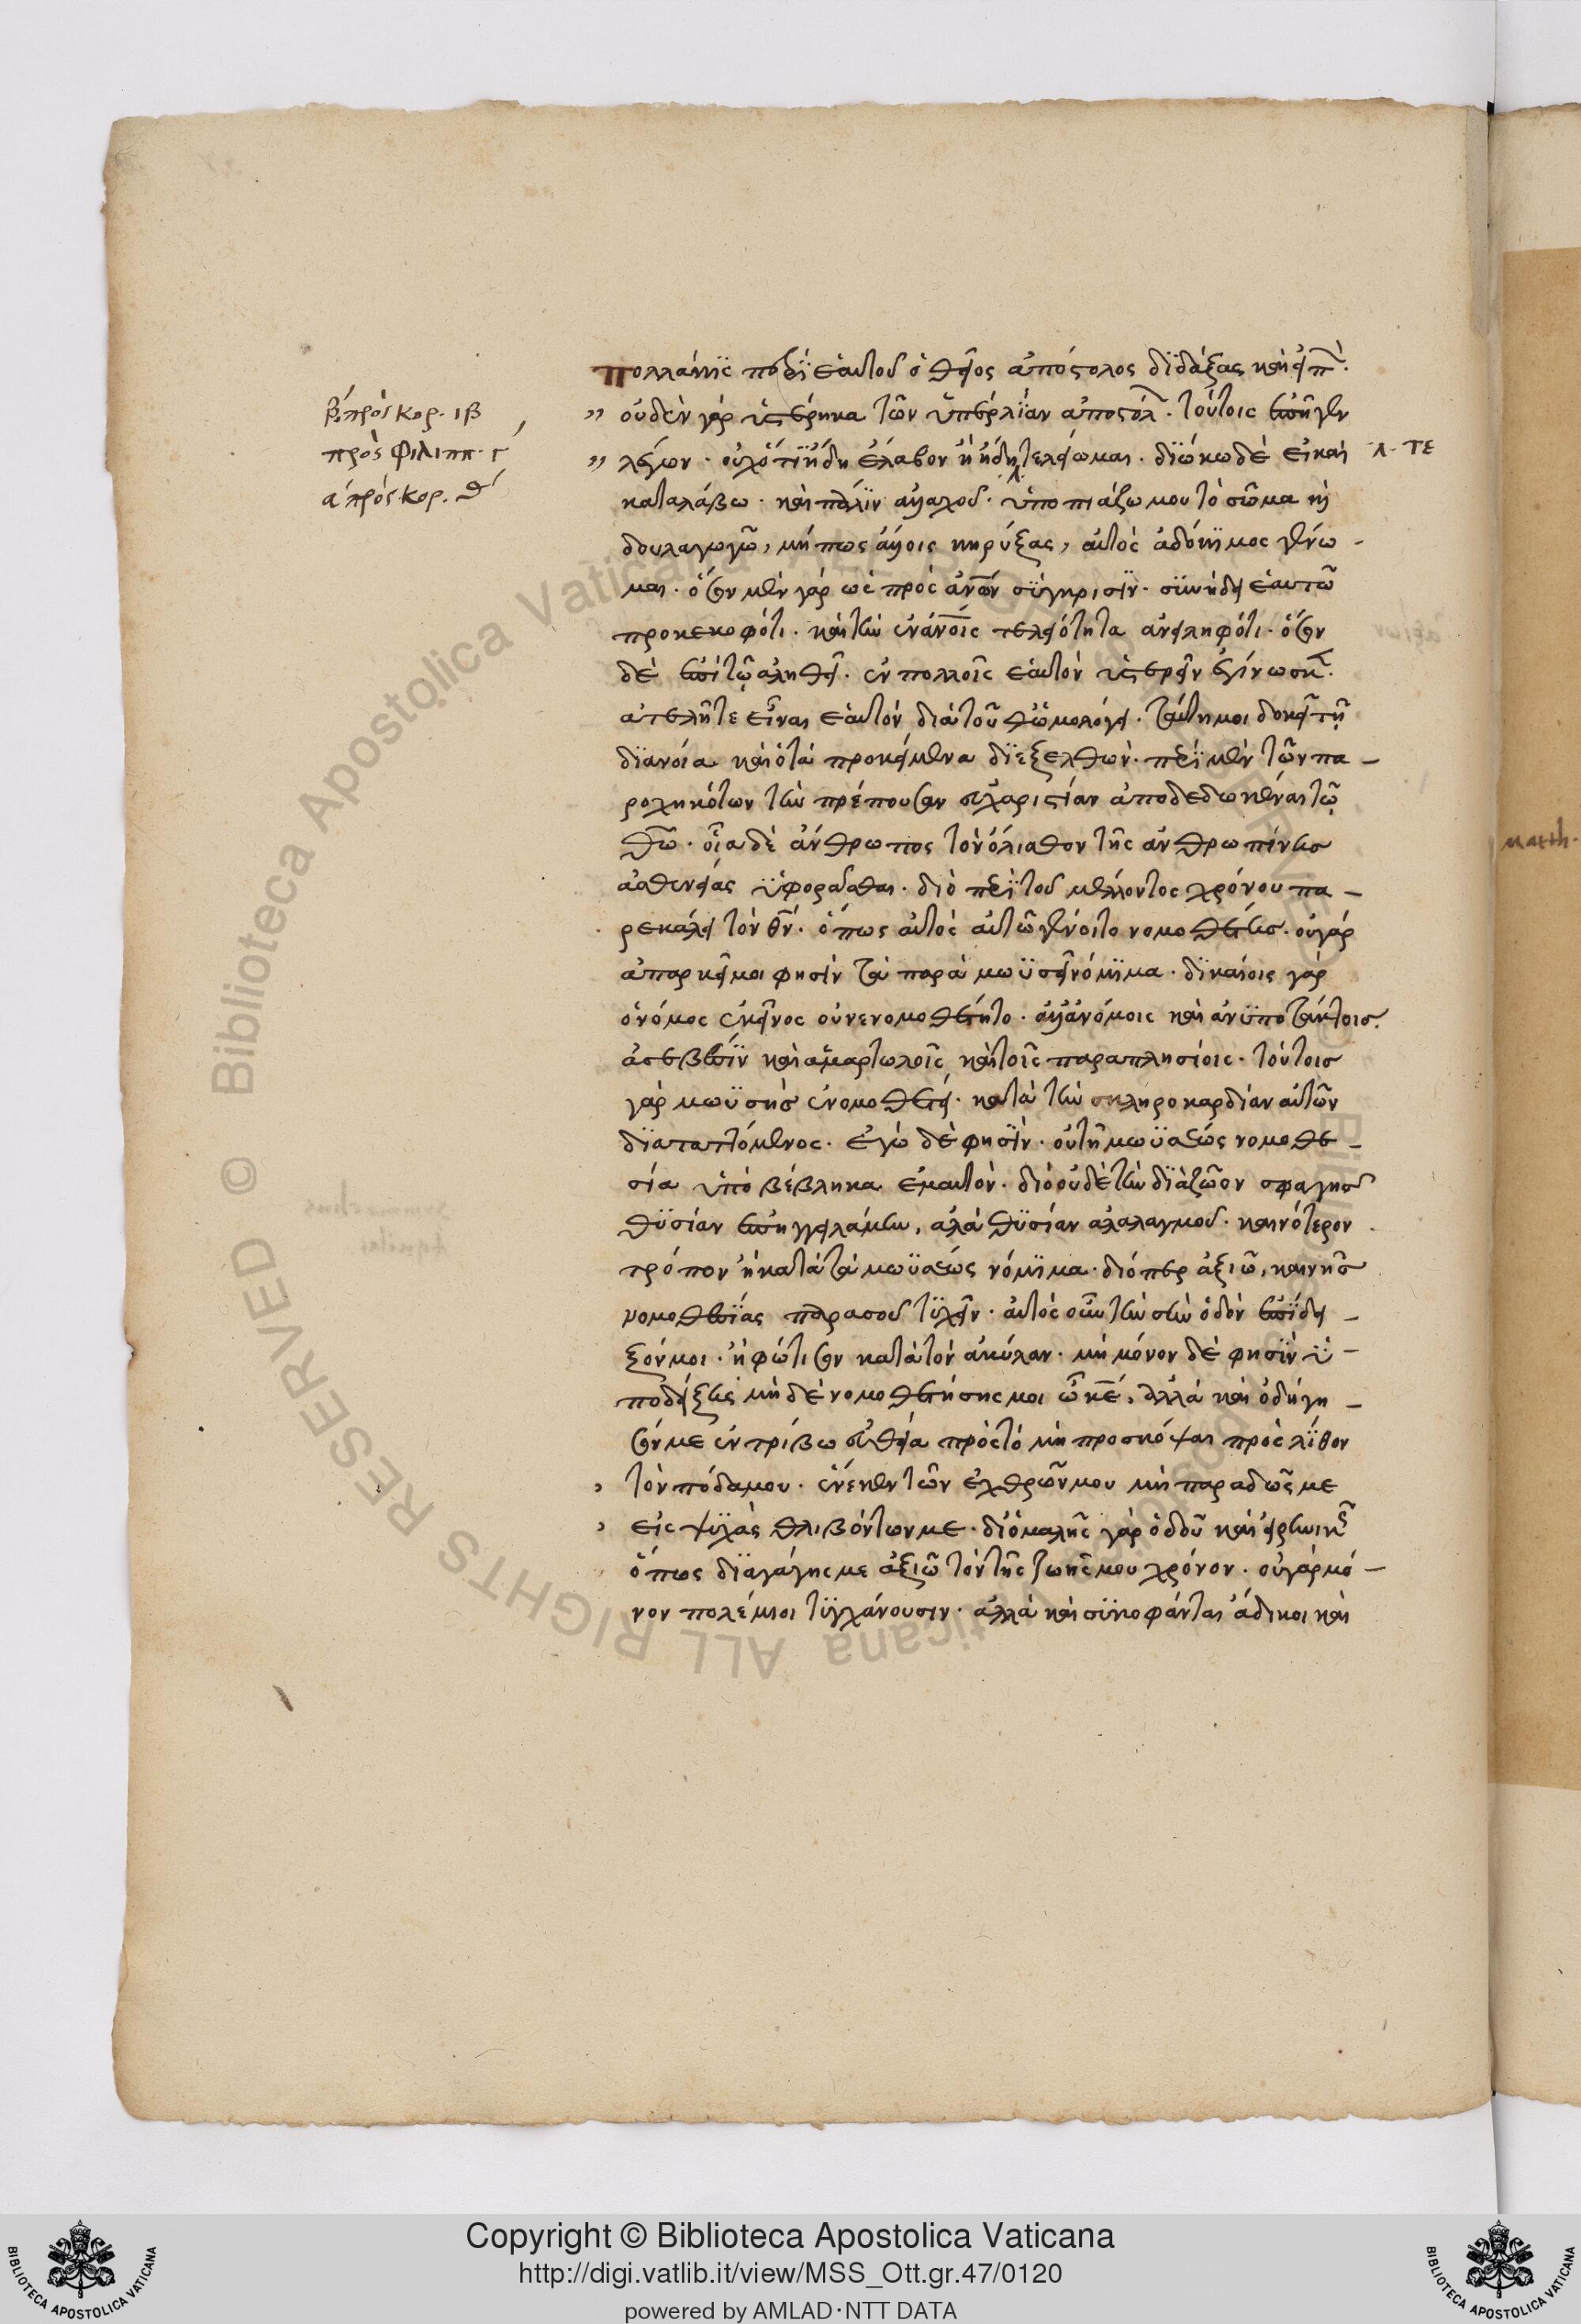 β πρὸς κορ. ιβ
πρὸς φιλιππ. γ
α πρὸς κορ. θ
πολλάκϊς περὶ ἑαυτοῦ ὁ θεῖος ἀπόστολος διδάξας καὶ εἰπ.
οὐδὲν γὰρ ὑστέρηκα τῶν ὑπερλίαν ἀποστόλ. τούτοις ἐπῆγεν
λέγων. οὐχ ὅτι ἤδη ἔλαβον ἢ ἤδη τελείωμαι. διώκω δὲ εἰ καὶ
λ. τε
καταλάβω. καὶ πάλιν ἀλλαχοῦ. ὑποπιάζω μου τὸ σῶμα κὶ
δουλαγωγῶ, μήπως ἄλλοις κηρύξας, αὐτὸς ἀδόκιμος γένω-
μαι. ὅσον μὲν γὰρ ὡς πρὸς ἀνων σύγκρισιν. συνήδει ἑαυτῶ
προκεκοφότι. καὶ τὴν ἐν ἀνοις τελειότητα ἀνειληφότι. ὅσον
δὲ ἐπὶ τῶ ἀληθεῖ. ἐν πολλοῖς ἑαυτὸν ὑστερεῖν ἐγίνωσκ.
ἀτελῆ τε εἶναι ἑαυτὸν διὰ τοῦθ' ὡμολόγει. ταύτη μοι δοκεῖ τῆ
διανοία καὶ ὁ τὰ προκείμενα διεξελθὼν. περὶ μὲν τῶν πα-
ρωχηκότων τὴν πρέπουσαν εὐχαριστίαν ἀποδεδωκέναι τῶ
θῶ. οἷα δὲ ἄνθρωπος τὸν ὄλισθον τῆς ἀνθρωπίνης
ἀσθενείας ὑφορᾶσθαι. διὸ περὶ τοῦ μέλλοντος χρόνου πα-
ρεκάλει τὸν θν. ὅπως αὐτὸς αὐτῶ γένοιτο νομοθέτης. οὐ γὰρ
ἀπαρκεῖ μοι φησὶν τὰ παρὰ μωϋσεῖ νόμιμα. δικαίοις γὰρ
ὁ νόμος ἐκεῖνος οὐ νενομοθέτητο. ἀλλ' ἀνόμοις καὶ ἀνυποτάκτοις.
ἀσεβέσιν καὶ ἁμαρτωλοῖς καὶ τοῖς παραπλησίοις. τούτοις
γὰρ μωϋσῆς ἐνομοθέτει. κατὰ τὴν σκληροκαρδίαν αὐτῶν
διαταττόμενος. ἐγὼ δὲ φησὶν. οὐ τῆ μωϋσέως νομοθε-
σία ὑποβέβληκα ἐμαυτὸν. διὸ οὐδὲ τὴν διὰ ζώων σφαγῆς
θυσίαν ἐπηγγειλάμην, ἀλλὰ θυσίαν ἀλαλαγμοῦ. καινότερον
τρόπον ἢ κατὰ τὰ μωϋσέως νόμιμα. διόπερ ἀξιῶ, καινῆς
νομοθεσίας παρὰ σοῦ τυχεῖν. αὐτὸς οὖν τὴν σὴν ὁδὸν ἐπίδει-
ξόν μοι. ἢ φώτισον κατὰ τὸν ἀκύλαν. μὴ μόνον δὲ φησὶν ὑ-
ποδείξης μὴ δὲ νομοθετήσης μοι ὦ κε, ἀλλὰ καὶ ὁδήγη-
σόν με ἐν τρίβω εὐθεία πρὸς τὸ μὴ προσκόψαι πρὸς λίθον
τὸν πόδα μου. ἕνεκεν τῶν ἐχθρῶν μου μὴ παραδῶς με
εἰς ψυχὰς θλιβόντων με. δι' ὁμαλῆς γὰρ ὁδοῦ καὶ εἰρηνικ
ὅπως διαγάγης με ἀξιῶ τὸν τῆς ζωῆς μου χρόνον. οὐ γὰρ μό-
νον πολέμιοι τυγχάνουσιν. ἀλλὰ καὶ συκοφάνται ἄδικοι καὶ
Copyright © Biblioteca Apostolica Vaticana
http://digi.vatlib.it/view/MSS_Ott.gr.47/0120
powered by AMLAD·NTT DATA